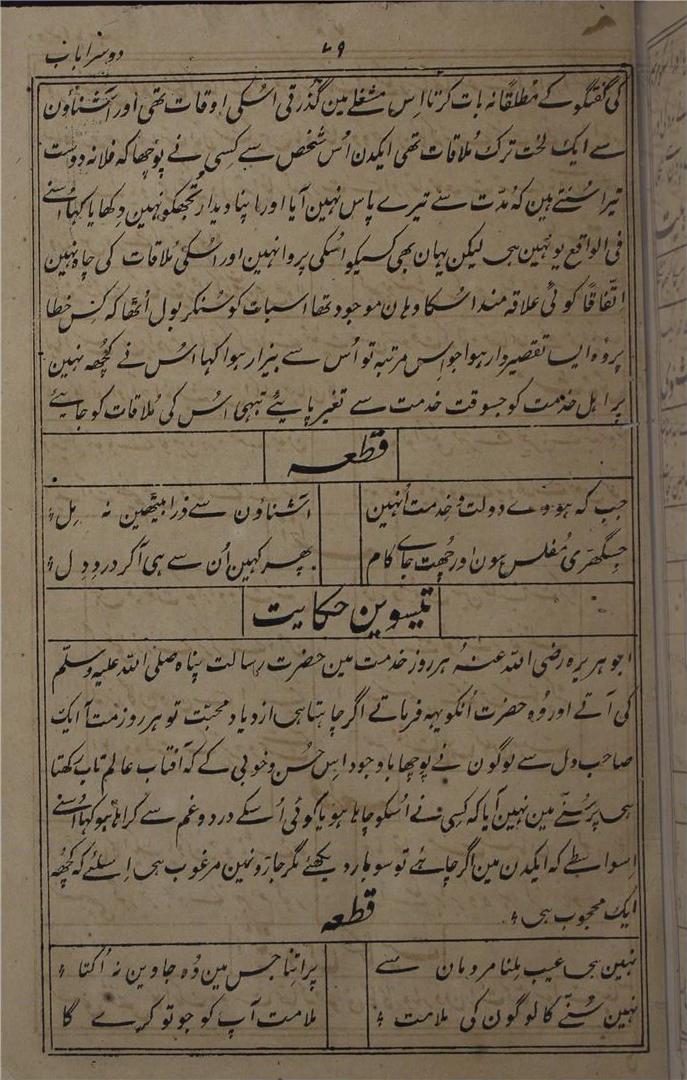 ۷۹
دوسرا باب
کی گفتگو کے مطلقا نہ بات کرتا اس مشغلے مین گذرتی اسکی اوقات تھی اور آشناؤن
سے ایک لخت ترک ملاقات تھی ایکدن اُس شخص سے کسی نے پوچھا کہ فلانہ دوست
تیرا سُنتے ہین کہ مُدّت سے تیرے پاس نہین آیا اور اپنا دیدار تجھکو نہین دکھایا کہا اُسنے
فی الواقع یونہین ہی لیکن یہان بھی کسیکو اسکی پروا نہین اور اُسکی مُلاقات کی چاہ نہین
اِتّفاقًا کوئی علاقہ مند اُسکا وہان موجود تھا اسبات کو سُنکر بول اُٹھا کہ کس خطا
پر وہ ایسا تقصیروار ہوا جو اس مرتبہ تو اُس سے بیزار ہوا کہا اُس نے کچھہ نہین
پر اہل خدمت کو جسوقت خدمت سے تغیر پایئے تبہی اُس کی مُلاقات کو جایئے
قطعہ
جب کہ ہووے دولت و خدمت اُنہین
آشناؤن سے ذرا بیٹھین نہ مِل
جسگھڑی مُفلس ہون اور چُھٹ جاے کام
پھر کہین اُن سے ہی آکر دردِ دِل
تیسوین حکایت
ابو ہریرہ رضی اللہ عنہُ ہر روز خدمت مین حضرت رسالت پناہ صلی اللہ علیہ وسلم
کی آتے اور وُہ حضرت اُنکو یہہ فرماتے اگر چاہتا ہی ازدیاد محبّت تو ہر روز مت آ ایک
صاحب دل سے لوگون نے پوچھا باوجود اس حُسن و خوبی کے کہ آفتاب عالم تاب رکھتا
ہی پر سُننے مین نہین آیا کہ کسی نے اُسکو چاہا ہو یا کوئی اُسکے درد و غم سے کراہا ہو کہا اُسنے
اِسواسطے کہ ایکدن مین اگر چاہئے تو سو بار دیکھئے مگر جاڑونمین مرغوب ہی اِسلئے کہ کچھہ
ایک محجوب ہی
قطعہ
نہین ہی عیب مِلنا مردمان سے
پر اِتنا جس مین وُہ جاوین نہ اُکتا
نہین سُننے کا لوگون کی ملامت
ملامت آپ کو جو تو کرے گا